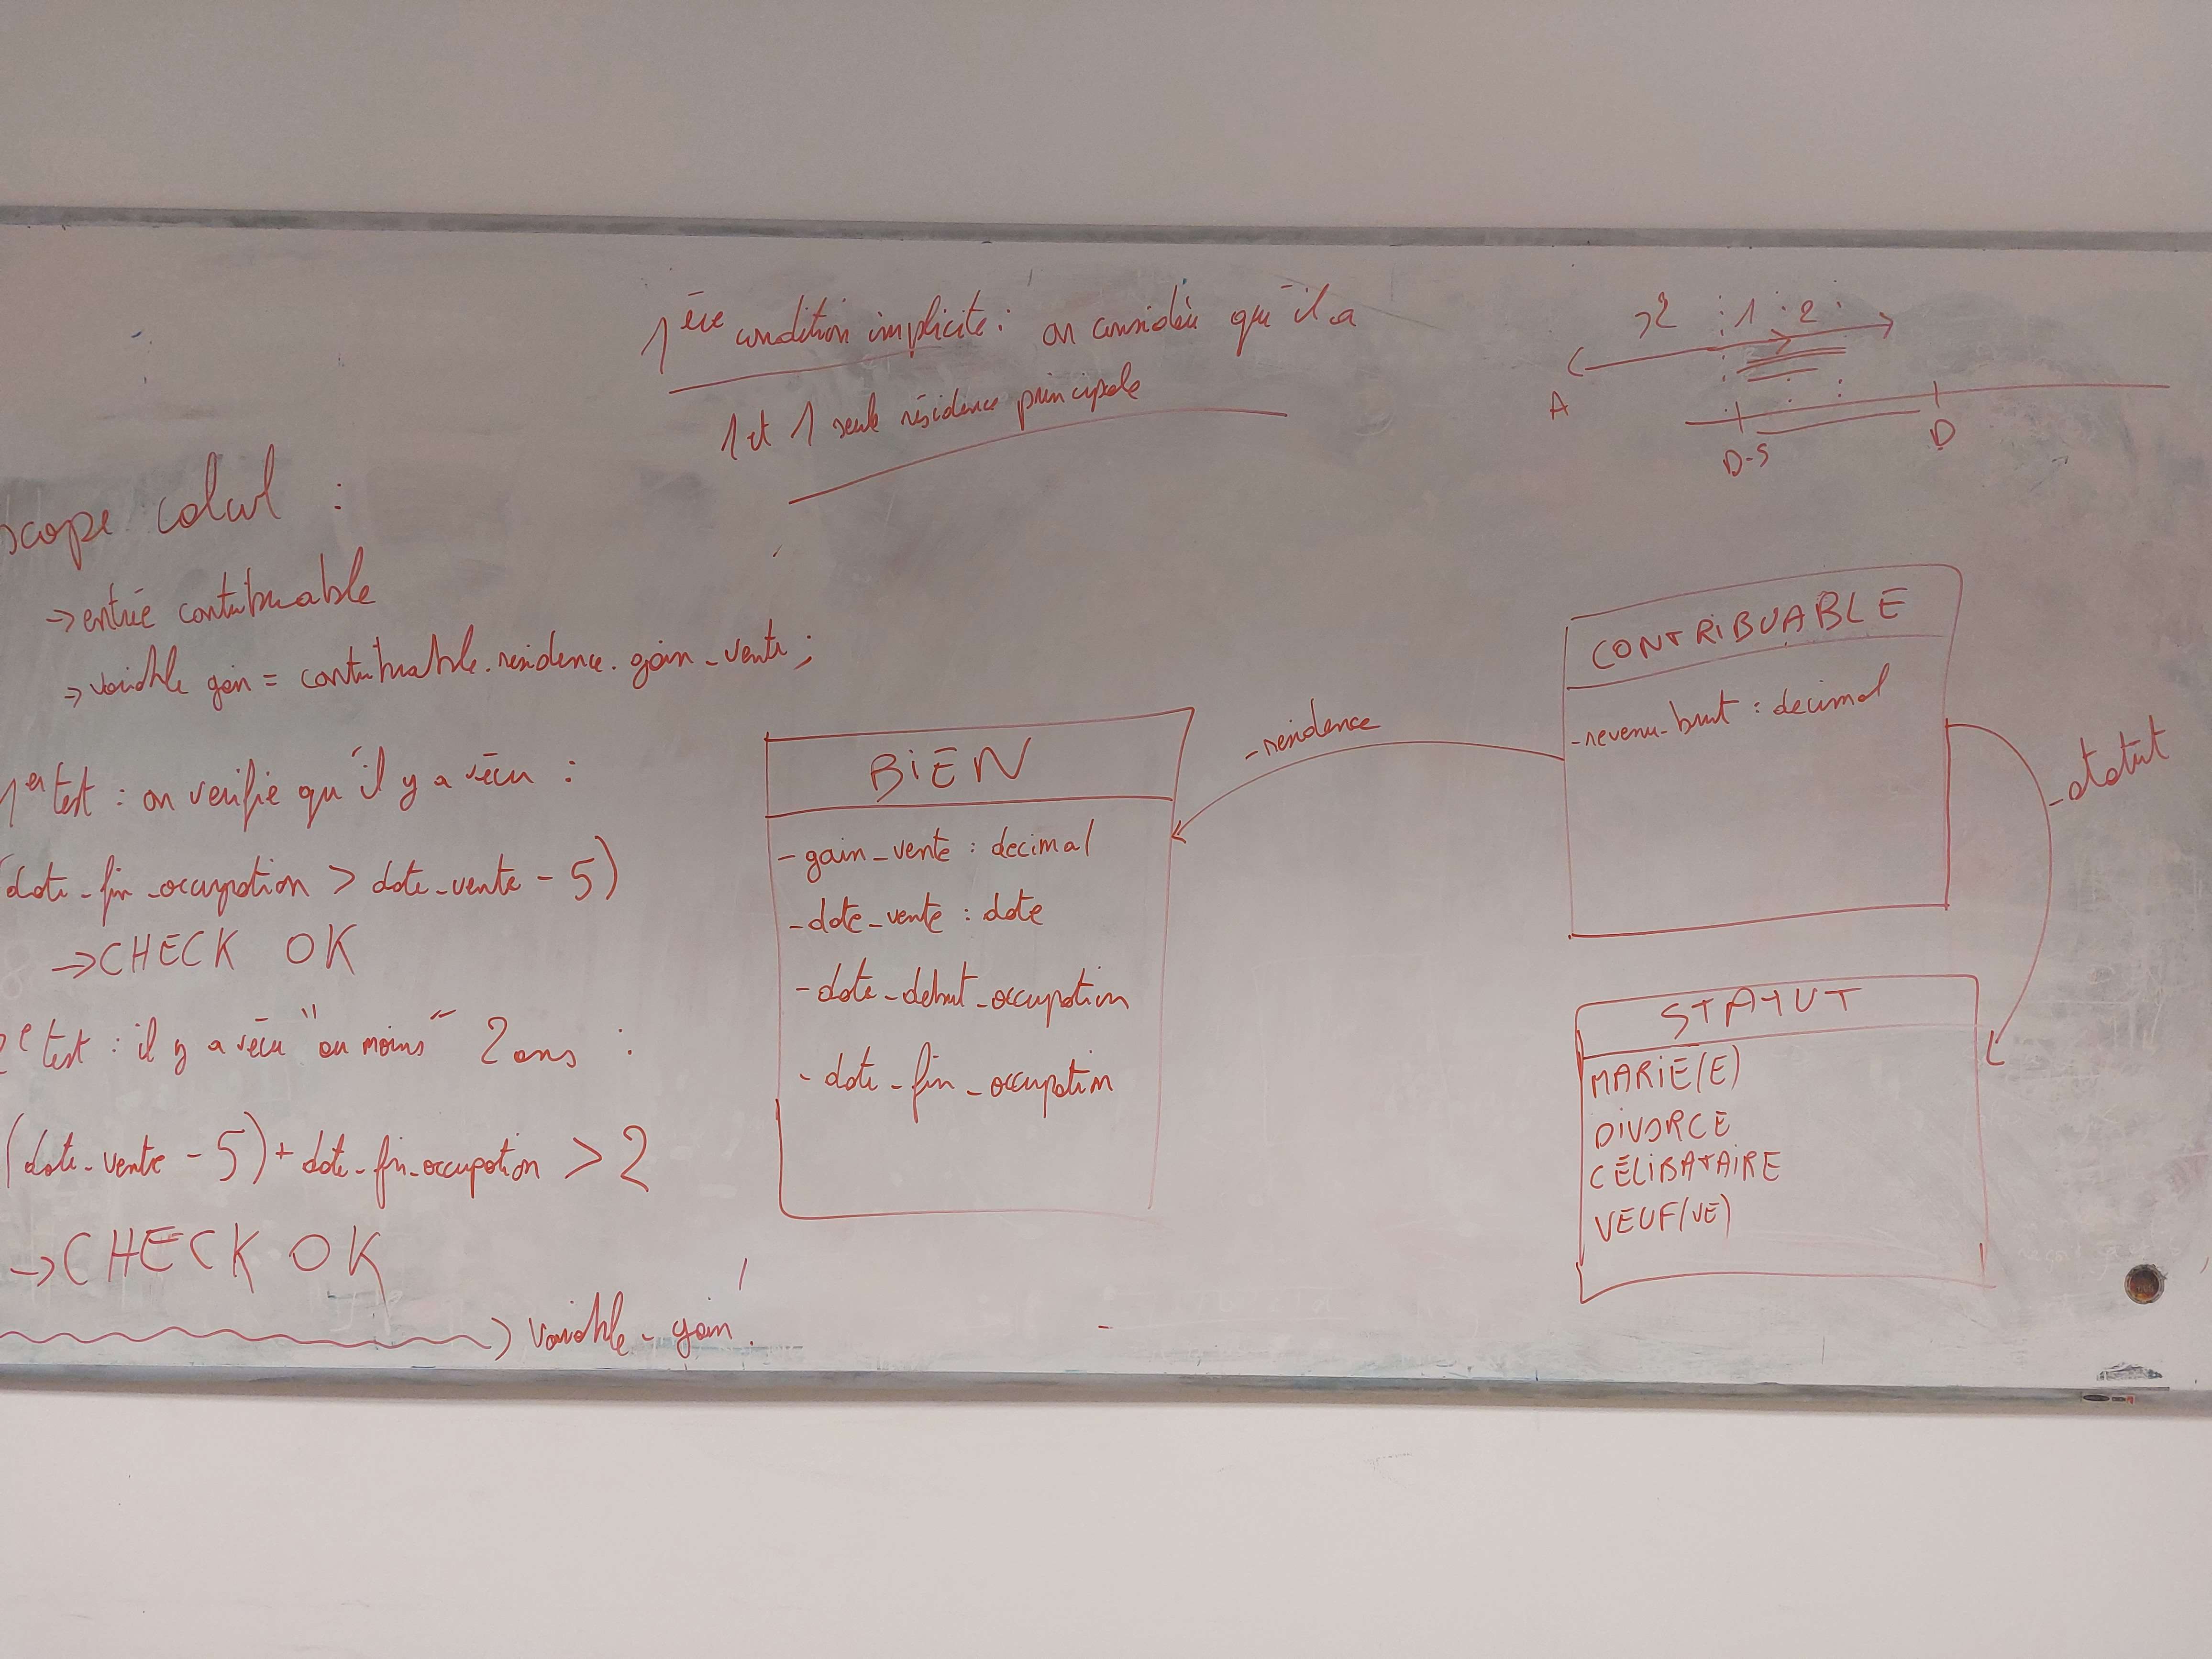 1ère condition implicite : on considère qu'il a
1 et 1 seule résidence principale
>2 1 2
A
D-5 D
scope calcul :
→ entrée contribuable
→ variable gain = contribuable.residence.gain_vente ;
1er test : on verifie qu'il y a vécu :
(date_fin_occupation > date_vente - 5)
→ CHECK OK
2e test : il y a vécu "au moins" 2 ans :
(date_vente - 5) + date_fin_occupation > 2
→ CHECK OK
→ variable_gain
BIEN
- gain_vente : decimal
- date_vente : date
- date_debut_occupation
- date_fin_occupation
- residence
CONTRIBUABLE
- revenu_brut : decimal
- statut
STATUT
MARIE(E)
DIVORCE
CÉLIBATAIRE
VEUF(VE)